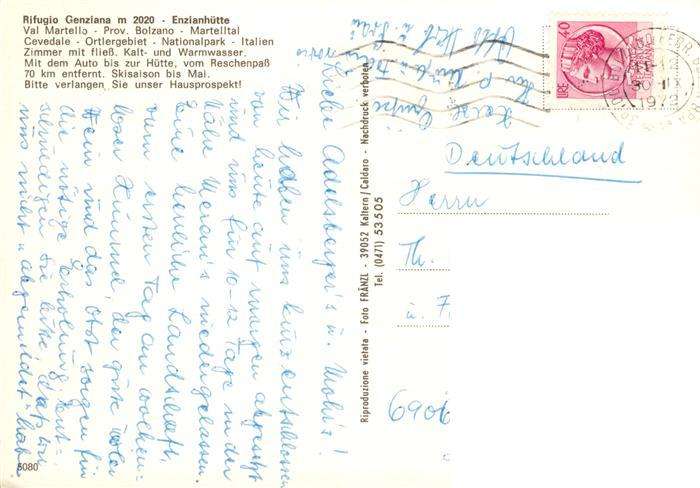 Rifugio Genziana m 2020 - Enzianhütte
Val Martello - Prov. Bolzano - Martelltal
Cevedale - Ortlergebiet - Nationalpark - Italien
Zimmer mit fließ. Kalt- und Warmwasser.
Mit dem Auto bis zur Hütte, vom Reschenpaß
70 km entfernt. Skisaison bis Mai.
Bitte verlangen Sie unser Hausprospekt!
Liebe Adelsberger's u. Mohr's!
Wir haben uns kurzentschlossen
von heute auf morgen abgesetzt
und uns für 10-12 Tage in der
Nähe Meran's niedergelassen.
Eine herrliche Landschaft,
vom ersten Tag an wolken-
loser Himmel, der gute
Wein und das Obst sorgen für
die nötige Erholung. Ent-
schuldigen Sie bitte, daß wir
uns nicht abgemeldet haben
Herzl. Grüße
Reproduzione vietata - Foto FRÄNZL - 39052 Kaltern / Caldaro - Nachdruck verboten
Tel. (0471) 53505
LIRE 40
1972
Deutschland
Herrn
Th.
u. F
6906
5080